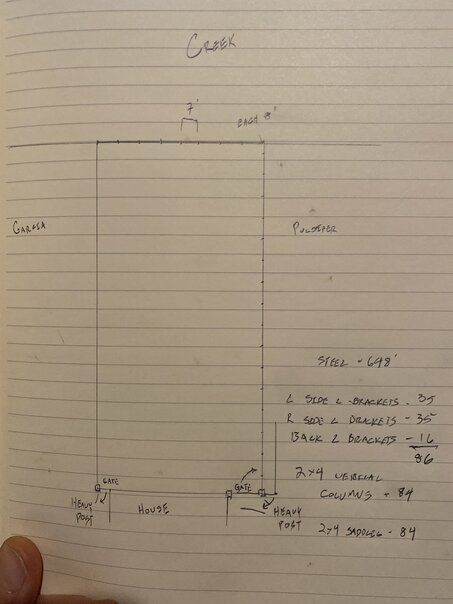 CREEK
7'
EACH 8'
GARCIA
PULSIFER
STEEL - 648'
L SIDE L BRACKETS - 35
R SIDE L BRACKETS - 35
BACK L BRACKETS - 16
86
2x4 VERTICAL
COLUMNS - 84
2x4 SADDLES - 84
GATE
GATE
HEAVY
POST
HOUSE
HEAVY
POST